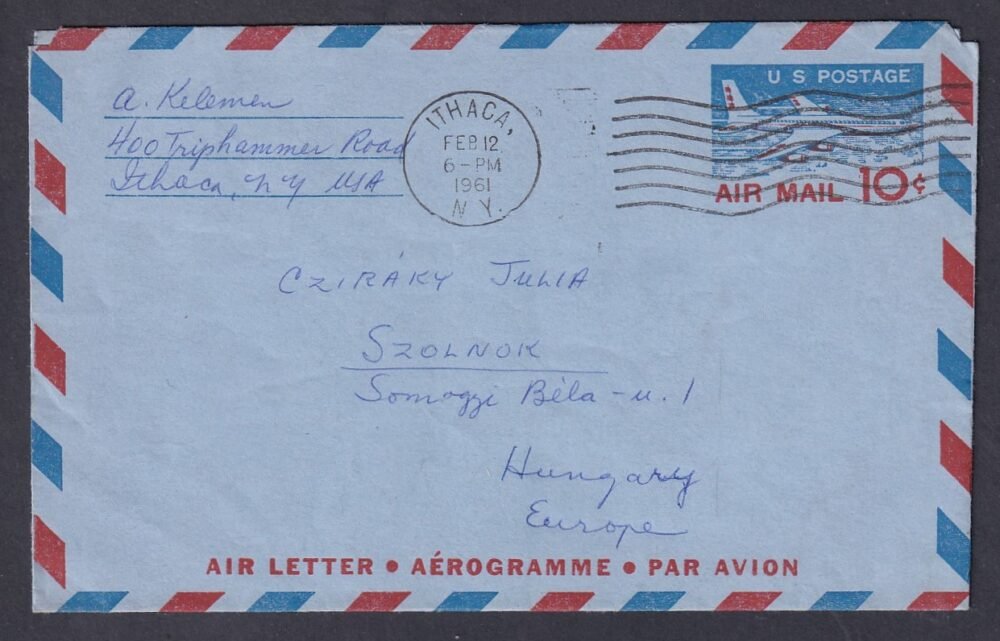 A. Kelemen
400 Triphammer Road
Ithaca, NY USA
ITHACA,
FEB 12
6-PM
1961
N Y.
U S POSTAGE
AIR MAIL 10¢
CZIRÁKY JULIA
SZOLNOK
Somogyi Béla-u. 1
Hungary
Europe
AIR LETTER • AÉROGRAMME • PAR AVION